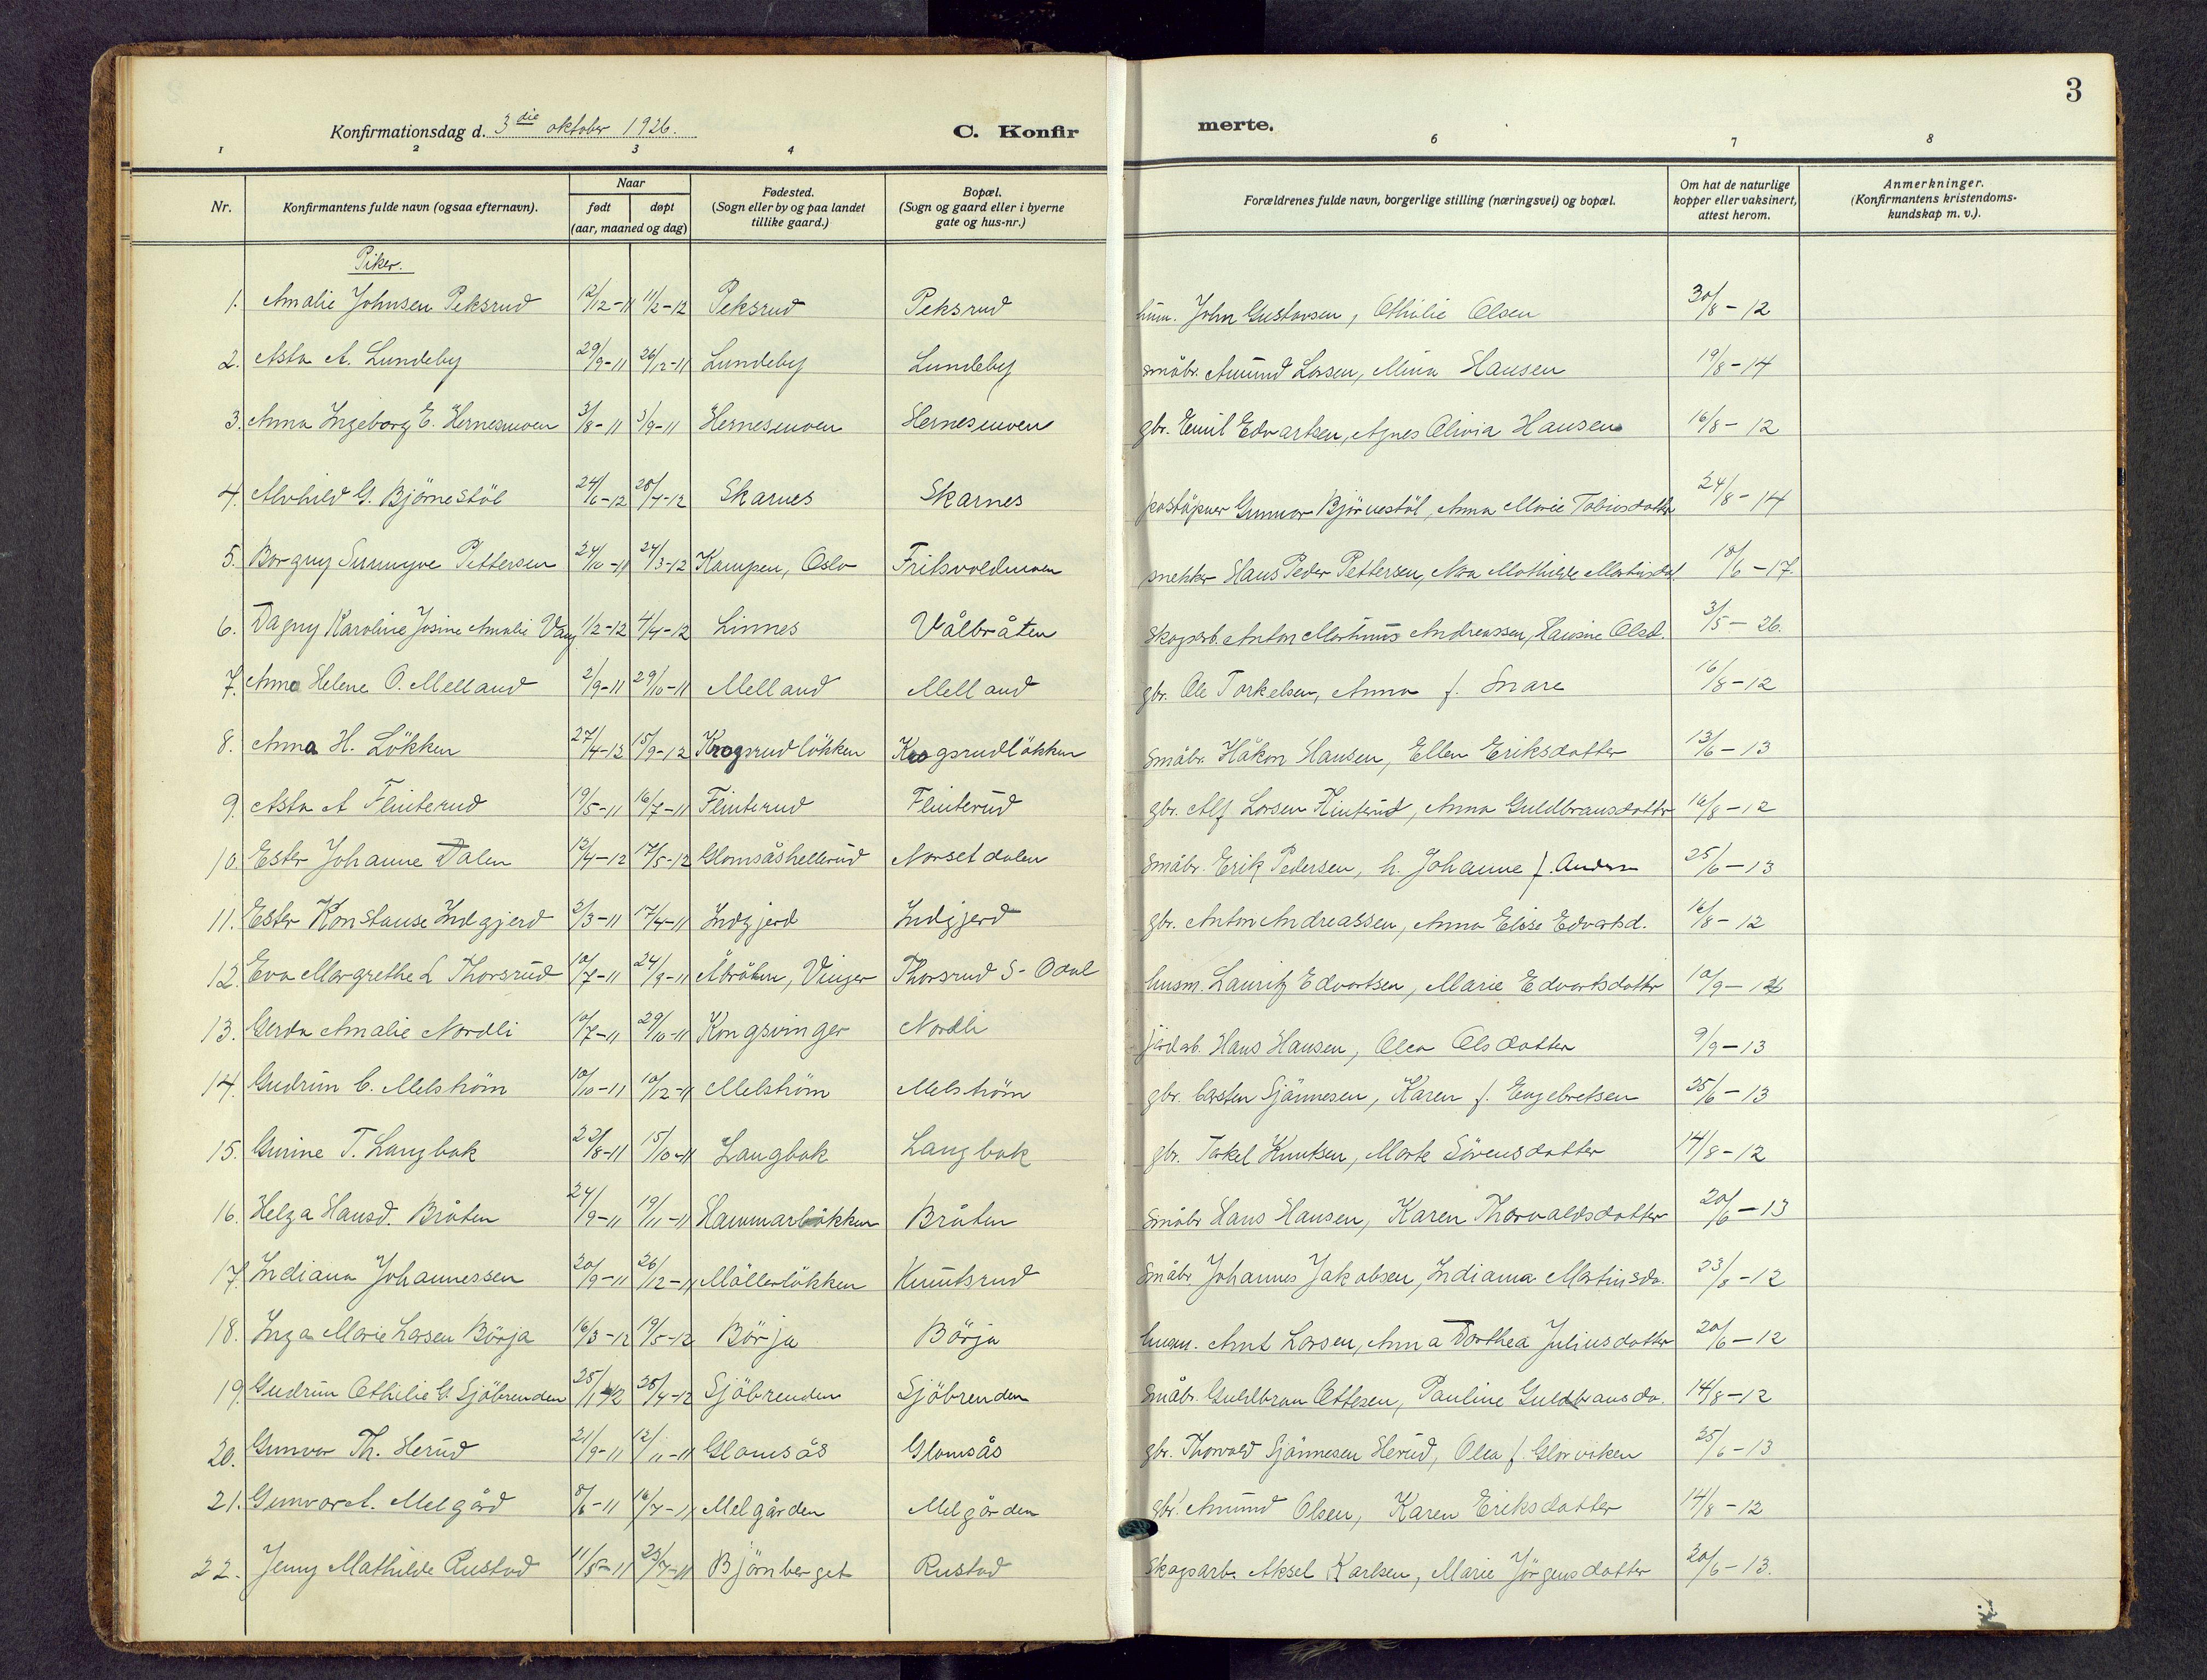 3
Konfirmationsdag d. 3die oktober 1926.
C. Konfirmerte.
1 2 3 4 6 7 8
Nr. | Konfirmantens fulde navn (ogsaa efternavn). | Naar født døpt (aar, maaned og dag) | Fødested. (Sogn eller by og paa landet tillike gaard.) | Bopæl. (Sogn og gaard eller i byerne gate og hus-nr.) | Forældrenes fulde navn, borgerlige stilling (næringsvei) og bopæl. | Om hat de naturlige kopper eller vaksinert, attest herom. | Anmerkninger. (Konfirmantens kristendoms-kundskap m. v.).
Piker.
1. Amalie Johnsen Peksrud 12/12-11 11/2-12 Peksrud Peksrud husm. John Gustavsen, Othilie Olsen 30/8-12
2. Asta A. Lundeby 29/9-11 26/12-11 Lundeby Lundeby småbr. Amund Larsen, Mina Hansen 19/8-14
3. Anna Ingeborg E. Hernesmoen 3/8-11 3/9-11 Hernesmoen Hernesmoen gbr. Emil Edvartsen, Agnes Olivia Hansen 16/8-12
4. Alvhild G. Björnestöl 24/6-12 28/7-12 Skarnes Skarnes poståpner Gunnar Björnestöl, Anna Marie Tobiasdotter 24/8-14
5. Borgny Sunnyve Pettersen 24/10-11 24/3-12 Kampen, Oslo Fritsvoldmoen snekker Hans Peder Pettersen, Mathilde 18/6-17.
6. Dagny Karoline Josine Amalie Vang 1/2-12 4/4-12 Linnes Vålbråten Skogsarb. Anton Martinus Andreassen, Hansine Olsd. 3/5-26.
7. Anna Helene O. Melland 2/9-11 29/10-11 Melland Melland gbr. Ole Torkelsen, Anna f. Snare 16/8-12
8. Anna H. Lökken 27/4-12 15/9-12 Krogsrudlökken Krogsrudlökken Småbr. Håkon Hansen, Ellen Eriksdotter 13/6-13
9. Asta A Flinterud 19/5-11 16/7-11 Flinterud Flinterud gbr. Alf Larsen Flinterud, Anna Guldbransdotter 16/8-12
10. Ester Johanne Dalen 12/4-12 17/5-12 Glomsåshellerud Norsetdalen Småbr. Erik Pedersen, h. Johanne f. 25/6-13
11. Ester Konstanse Indgjerd 2/3-11 17/4-11 Indgjerd Indgjerd gbr. Anton Andreassen, Anna Elise Edvartsd. 16/8-12
12. Eva Margrethe L Thorsrud 10/7-11 24/9-11 Åbråten, Vinger Thorsrud S-Odal husm. Lauritz Edvartsen, Marie Edvartsdotter 10/9-12
13. Gerda Amalie Nordli 10/7-11 29/10-11 Kongsvinger Nordli jordarb. Hans Hansen, Olea Olsdotter 9/9-13
14. Gudrun C. Melström 10/10-11 10/12-11 Melström Melström gbr. Carsten Sjännesen, Karen f. Engebretsen 25/6-13
15. Gurine T. Langbak 22/8-11 15/10-11 Langbak Langbak gbr. Torkel Knutsen, Marte Sörensdotter 14/8-12
16. Helga Hansd. Bråten 24/9-11 19/11-11 Hammarlökken Bråten Småbr Hans Hansen, Karen Thorvaldsdotter 20/6-13
17. Indiana Johannessen 20/9-11 26/12-11 Möllerlökken Knutsrud Småbr. Johannes Jakobsen, Indiana Martinsdr. 23/8-12
18. Inga Marie Larsen Börja 16/3-12 19/5-12 Börja Börja husm. Arnt Larsen, Anna Dorthea Juliusdotter 20/6-12
19. Gudrun Othilie G. Sjöbrenden 25/1-12 25/4-12 Sjöbrenden Sjöbrenden Småbr. Guldbran Ottesen, Pauline Guldbransdr. 14/8-12
20. Gunvor Th. Herud 21/9-11 12/11-11 Glomsås Glomsås gbr. Thorvald Sjännesen Herud, Olea f. Glorviken 25/6-13
21. Gunvor A. Melgård 8/6-11 16/7-11 Melgården Melgården gbr. Amund Olsen, Karen Eriksdotter 14/8-12
22. Jenny Mathilde Rustad 11/5-11 23/7-11 Björnberget Rustad Skogsarb. Aksel Karlsen, Marie Jörgensdotter 20/6-13.